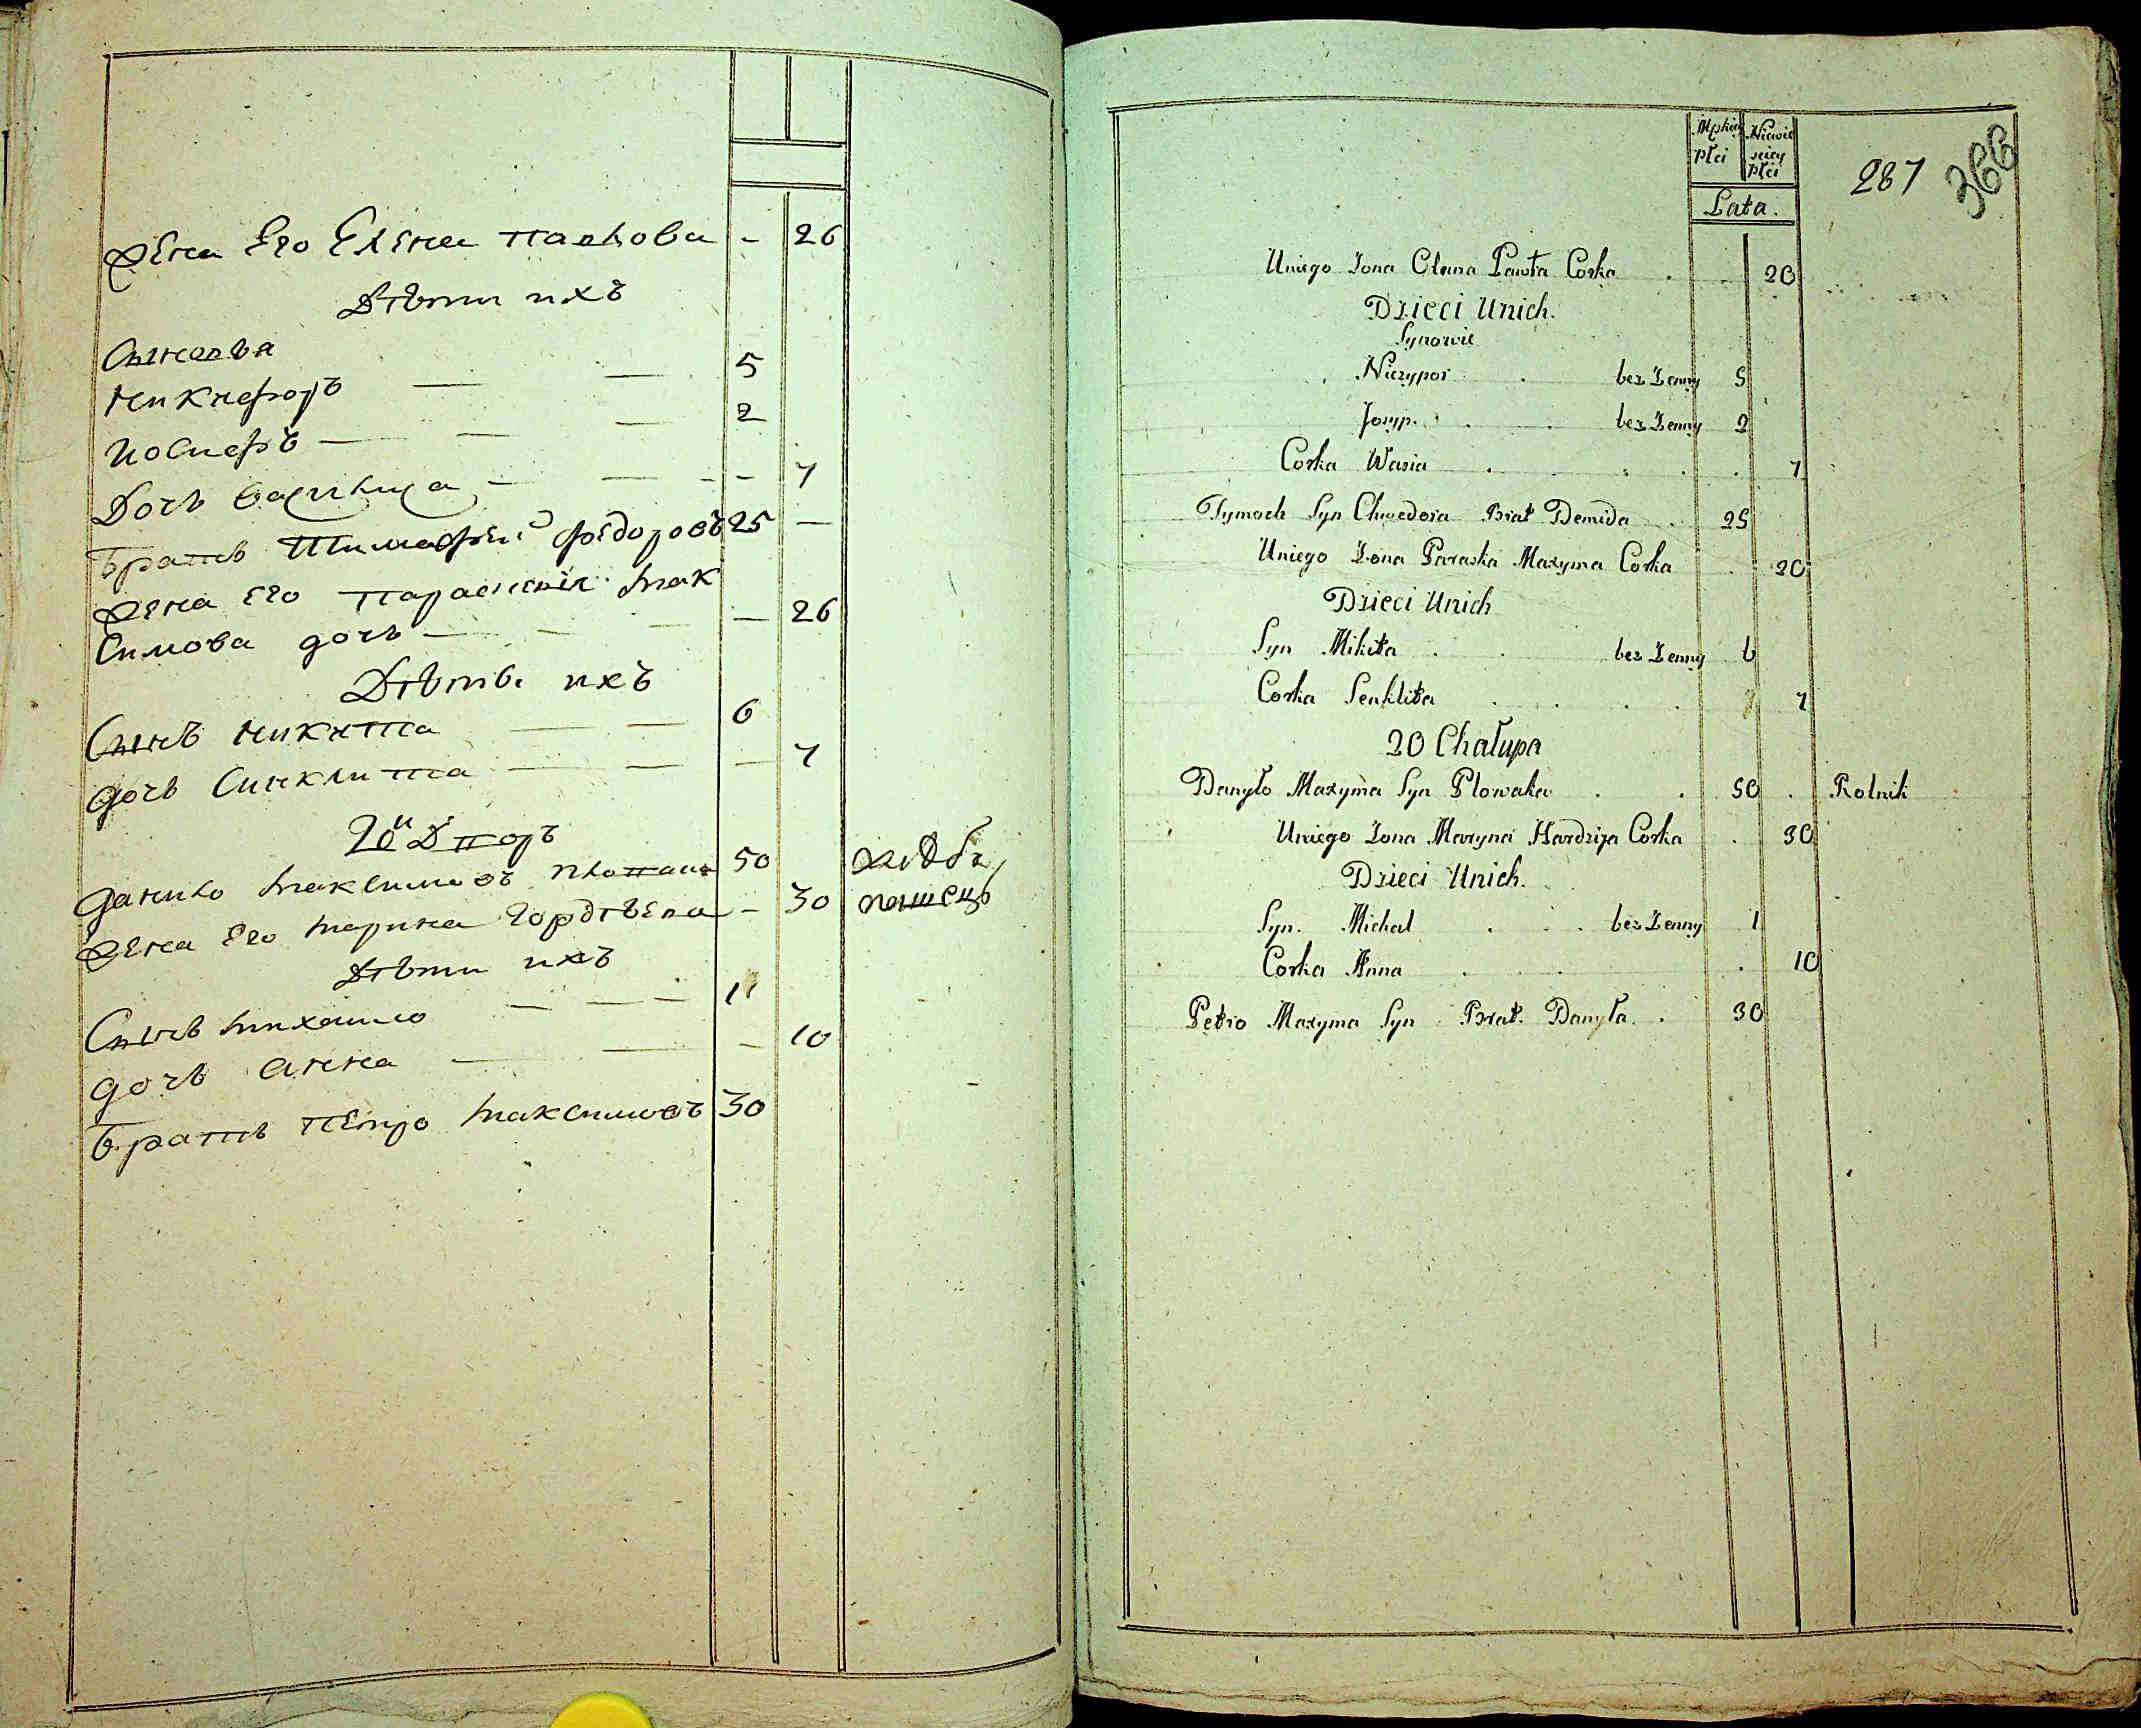 жена Его Елена павлова - 26
Дѣти ихъ
Сыновья
никифоръ — — 5
иосифъ — — — 2
Дочь василиса — — - - 7
братъ Тимофей федоровъ 25 —
жена его параскевiя мак
симова дочь — — — — 26
Дѣти ихъ
Сынъ никита — — 6
дочь Синклита — — — 7
20й Дворъ
данило максимовъ 50 хлѣба
жена Его марина Гордѣева - 30 пашецъ
Дѣти ихъ
Сынъ михайло — — — 1
дочь анна — — - 10
братъ петро максимовъ 30
Męskiey płci Niewieściey płci
287 366
Lata.
Uniego Zona Olena Pawła Corka . . 20
Dzieci Unich.
Synowie
Niczypor . bez Zenny 5
Josyp. . . bez Zenny 2
Corka Wasia . . . . 7
Tymoch Syn Chwedora Brat Demida . 25
Uniego Zona Paraska Maxyma Corka . 20
Dzieci Unich
Syn Mikita . . bez Zenny 6
Corka Senklita . . . . 7
20 Chałupa
Danyło Maxyma Syn . . 50 . Rolnik
Uniego Zona Maryna Hardzija Corka . 30
Dzieci Unich.
Syn. Michal . . . bez Zenny 1
Corka Anna . . . 10
Petro Maxyma Syn Brat. Danyła . 30